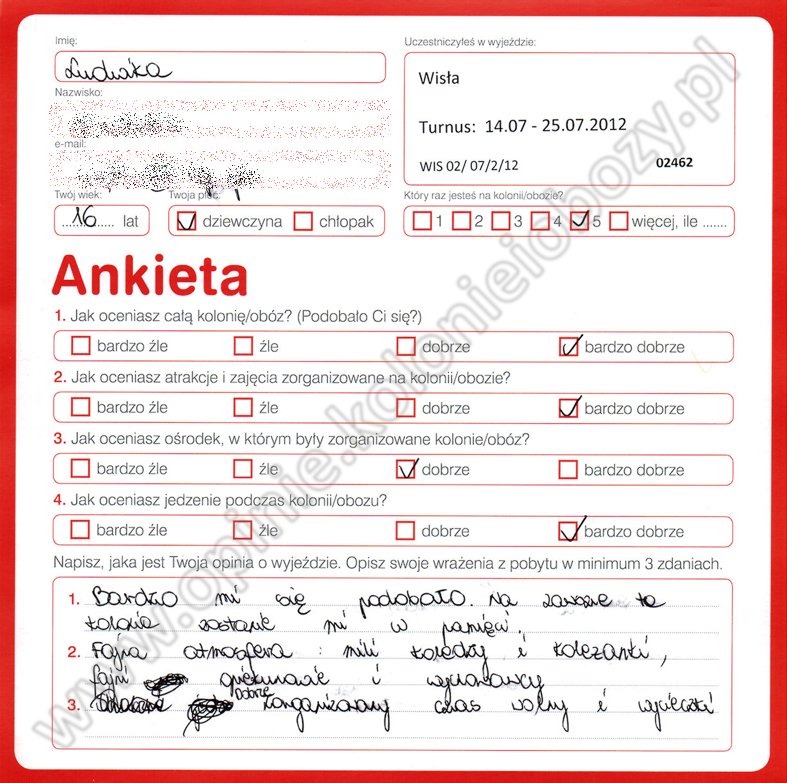 Imię:
Uczestniczyłeś w wyjeździe:
Wisła
Nazwisko:
Turnus: 14.07 - 25.07.2012
e-mail:
WIS 02/ 07/2/12 02462
Twój wiek: Twoja płeć: Który raz jesteś na kolonii/obozie?
16 lat dziewczyna chłopak 1 2 3 4 5 więcej, ile .......
Ankieta
1. Jak oceniasz całą kolonię/obóz? (Podobało Ci się?)
bardzo źle źle dobrze bardzo dobrze
2. Jak oceniasz atrakcje i zajęcia zorganizowane na kolonii/obozie?
bardzo źle źle dobrze bardzo dobrze
3. Jak oceniasz ośrodek, w którym były zorganizowane kolonie/obóz?
bardzo źle źle dobrze bardzo dobrze
4. Jak oceniasz jedzenie podczas kolonii/obozu?
bardzo źle źle dobrze bardzo dobrze
Napisz, jaka jest Twoja opinia o wyjeździe. Opisz swoje wrażenia z pobytu w minimum 3 zdaniach.
1. Bardzo mi się podobało. Na zawsze ta
kolonia zostanie mi w pamięci.
2. Fajna atmosfera: mili koledzy i koleżanki,
fajni opiekunowie i wychowawcy
3. dobrze zorganizowany czas wolny i wycieczki
www.opinie.kolonieiobozy.pl